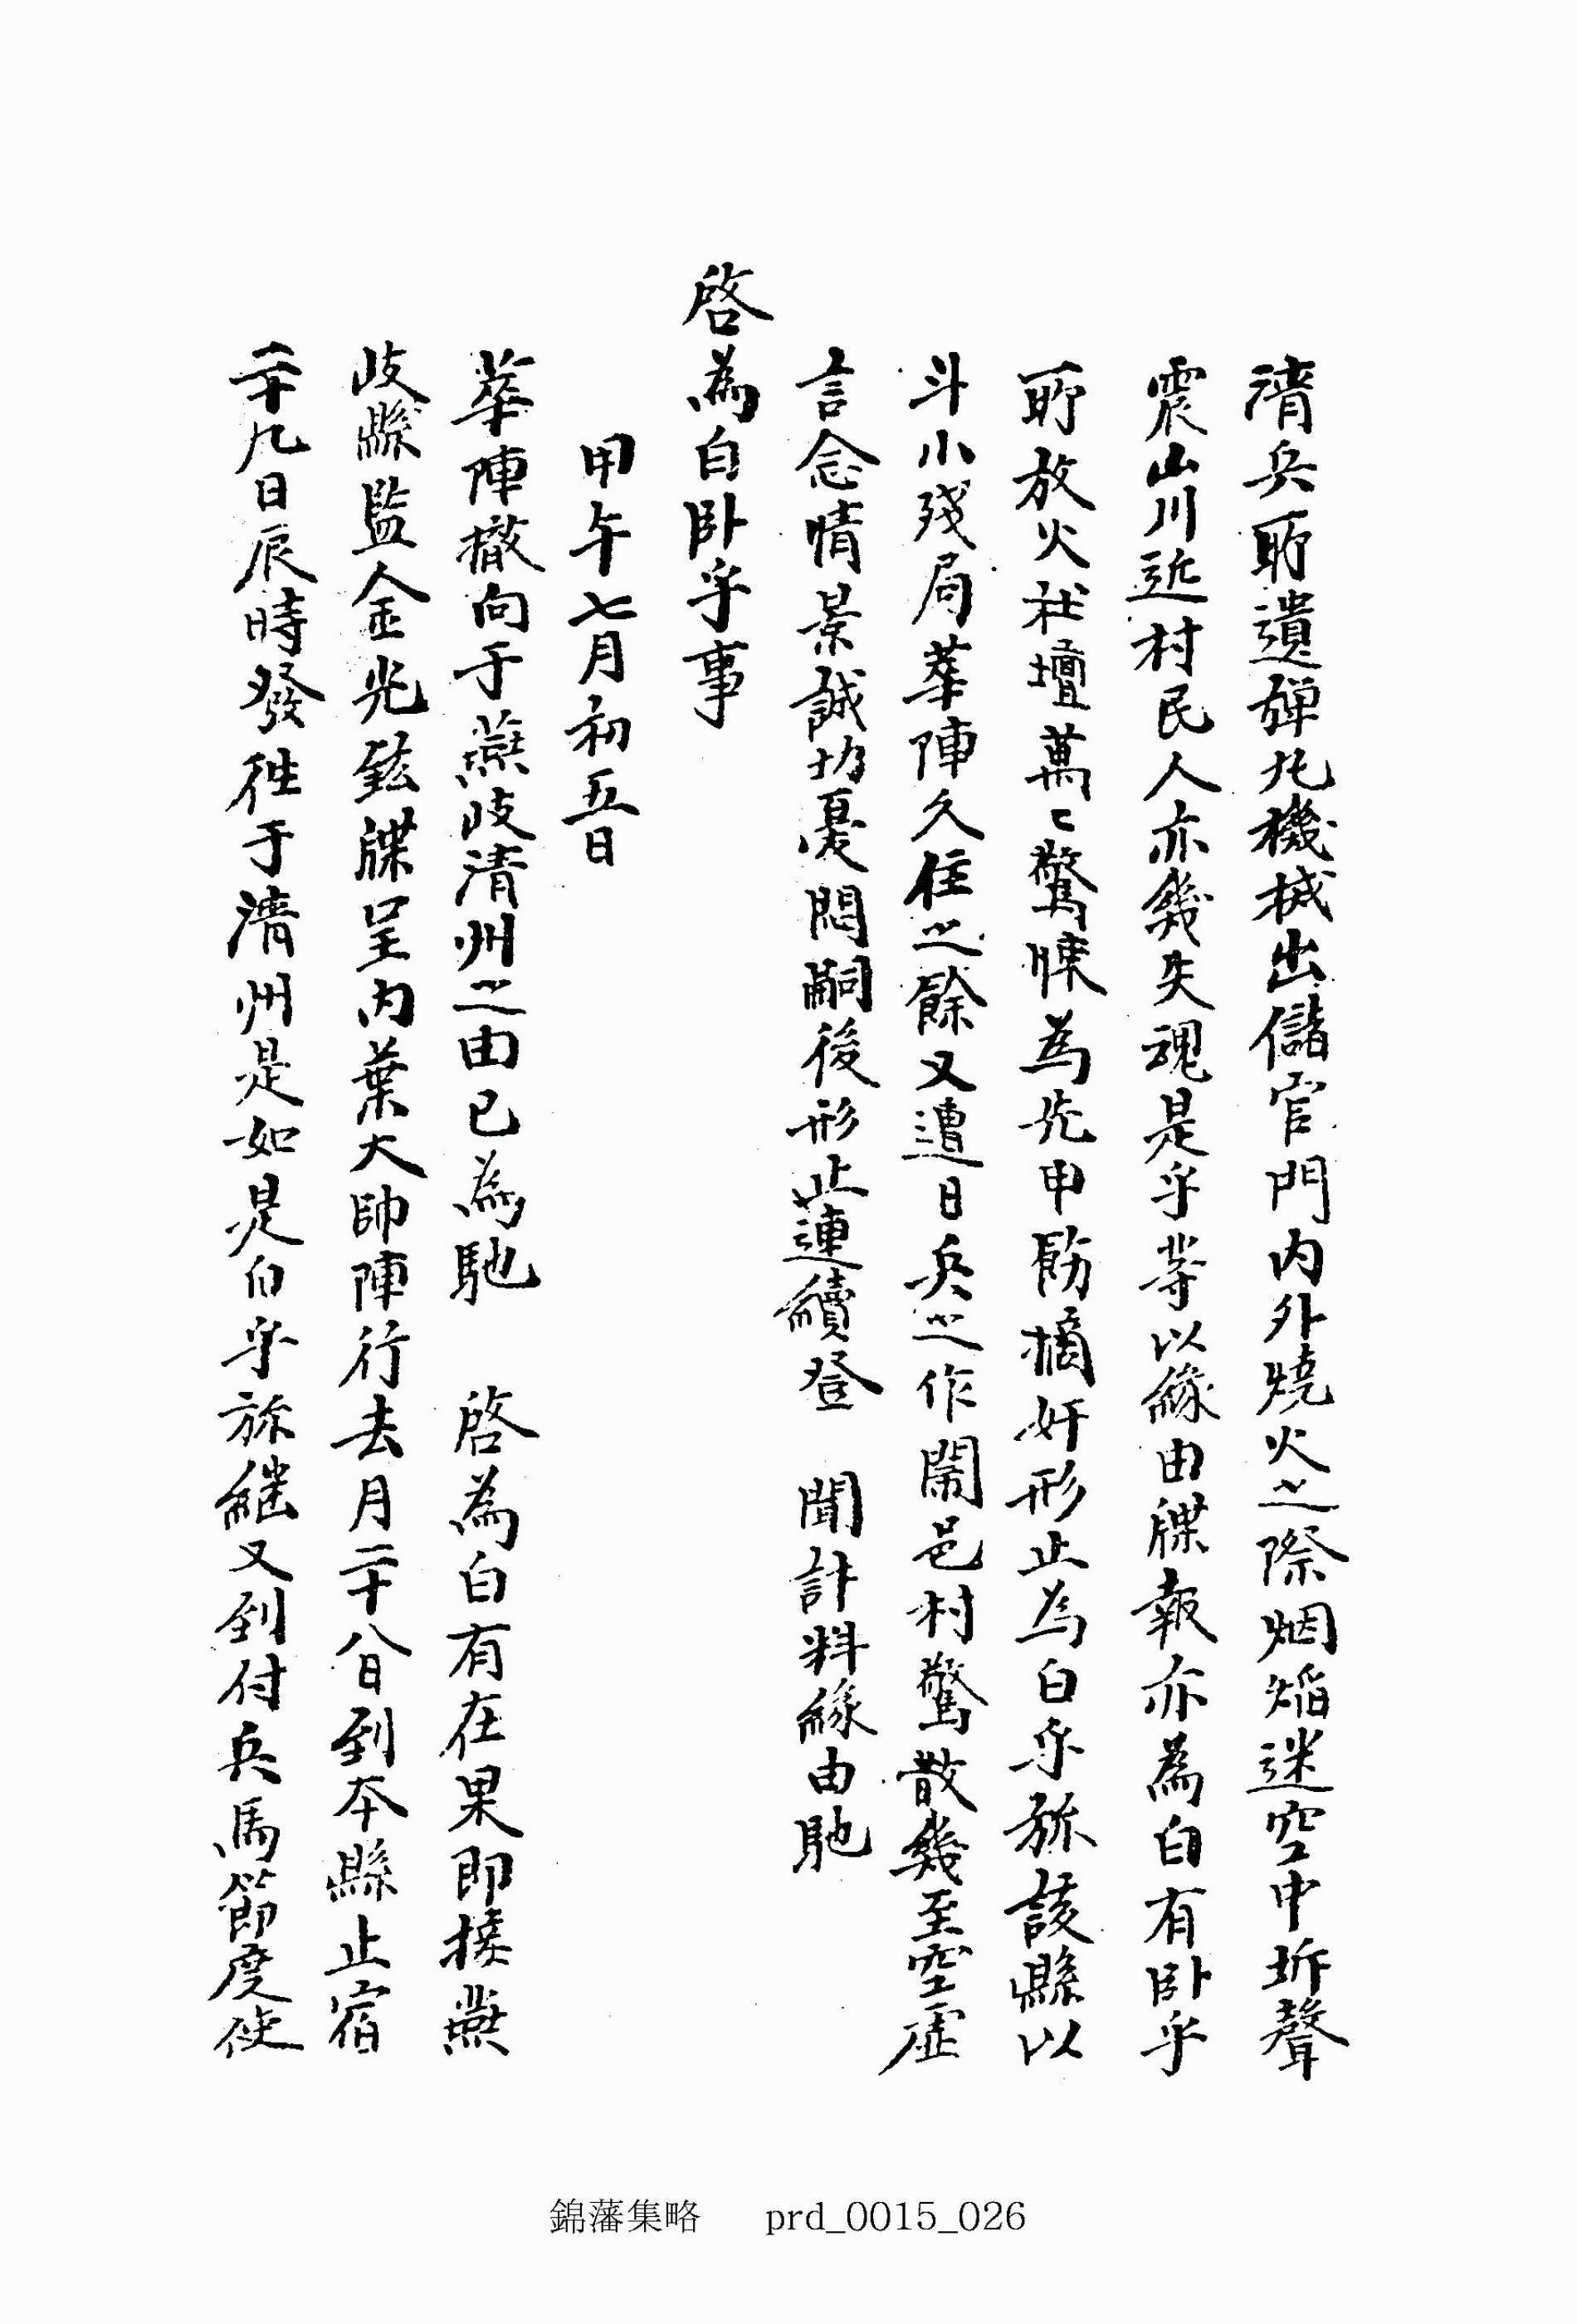 淸兵所遺彈丸機械出儲官門內外燒火之際烟焰迷空中坼聲
震山川近村民人亦幾失魂是乎等以緣由牒報亦爲白有臥乎
所放火社壇萬〻驚悚爲先申飭摘奸形止爲白乎旀該縣以
斗小殘局華陣久住之餘又遭日兵之作鬧邑村驚散幾至空虛
言念情景誠切憂悶嗣後形止連續登　聞計料緣由馳
啓爲白臥乎事
甲午七月初五日
華陣撤向于燕岐淸州之由已爲馳　啓爲白有在果卽接燕
岐縣監金光鉉牒呈內葉大帥陣行去月二十八日到本縣止宿
二十九日辰時發徃于淸州是如是白乎旀繼又到付兵馬節度使
錦藩集略　prd_0015_026